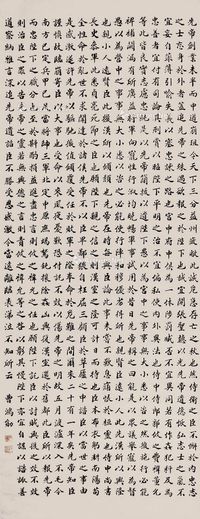 先帝創業未半而中道崩殂今天下三分益州疲敝此誠危急存亡之秋也然侍衛之臣不懈於內忠志
之士忘身於外者蓋追先帝之殊遇欲報之於陛下也誠宜開張聖聽以光先帝遺德恢弘志士之氣不宜
妄自菲薄引喻失義以塞忠諫之路也宮中府中俱為一體陟罰臧否不宜異同若有作奸犯科及為忠善
者宜付有司論其刑賞以昭陛下平明之理不宜偏私使內外異法也侍中侍郎郭攸之費禕董允
等此皆良實志慮忠純是以先帝簡拔以遺陛下愚以為宮中之事事無大小悉以咨之然後施行必能
裨補闕漏有所廣益將軍向寵性行淑均曉暢軍事試用於昔日先帝稱之曰能是以眾議舉寵以為督
愚以為營中之事事無大小悉以咨之必能使行陣和穆優劣得所也親賢臣遠小人此先漢所以興隆
也親小人遠賢臣此後漢所以傾頹也先帝在時每與臣論此事未嘗不歎息痛恨於桓靈也侍中尚書
長史參軍此悉貞亮死節之臣也願陛下親之信之則漢室之隆可計日而待也臣本布衣躬耕南陽苟
全性命於亂世不求聞達於諸侯先帝不以臣卑鄙猥自枉屈三顧臣於草廬之中諮臣以當世之事由是
感激遂許先帝以驅馳後值傾覆受任於敗軍之際奉命於危難之間爾來二十有一年矣先帝知臣
謹慎故臨崩寄臣以大事也受命以來夙夜憂歎恐託付不效以傷先帝之明故五月渡瀘深入不今
南方已定兵甲已足當獎帥三軍北定中原庶竭駑鈍攘除姦凶興復漢室還於舊都此臣所以報先帝
而忠陛下之職分也至於斟酌損益進盡忠言則攸之禕允之任也願陛下託臣以討賊興復之效不效
則治臣之罪以告先帝之靈若無興德之言則責攸之禕允等之咎以彰其慢陛下亦宜自謀以諮諏善
道察納雅言深追先帝遺詔臣不勝受恩感激今當遠離臨表涕泣不知所云 曹鴻